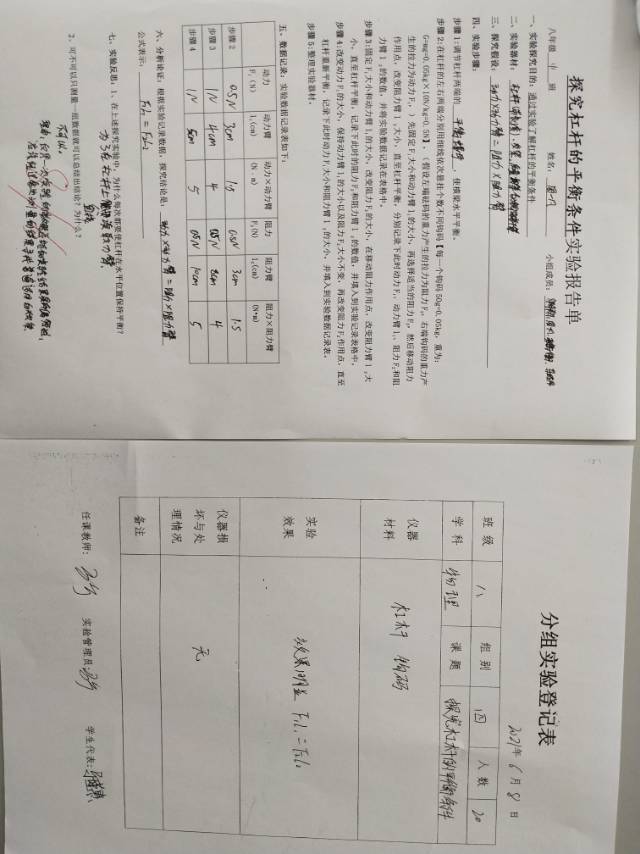 探究杠杆的平衡条件实验报告单
八年级 班 姓名： 小组成员：
一、实验探究目的：通过实验了解杠杆的平衡条件
二、实验器材：
三、探究假设：动力×动力臂＝阻力×阻力臂
四、实验步骤：
步骤1：调节杠杆两端的 平衡螺母 ，使横梁水平平衡。
步骤2：在杠杆的左右两端分别用细线依次悬挂个数不同钩码【每一个钩码50g=0.05kg，重为：
G=mg=0.05kg×10N/kg=0.5N】，（假设左端砝码的重力产生的拉力为阻力F₂，右端钩码的重力产
生的拉力为动力F₁，）先固定F₁大小和动力臂l₁的大小，再选择适当的阻力F₂，然后移动阻力
作用点，改变阻力臂l₂大小，直至杠杆平衡，分别记录下此时动力F₁、动力臂l₁、阻力F₂和阻
力臂l₂的数值，并将实验数据记录在表格中。
步骤3：固定F₁大小和动力臂l₁的大小，改变阻力F₂的大小，在移动阻力作用点，改变阻力臂l₂大
小，直至杠杆平衡，记录下此时的阻力F₂和阻力臂l₂的数值，并填入到实验记录表格中。
步骤4：改变动力F₁的大小，保持动力臂l₁的大小以及阻力F₂大小不变，再改变阻力F₂作用点，直至
杠杆重新平衡，记录下此时动力F₁大小和阻力臂l₂的大小，并填入到实验数据记录表。
步骤5：整理实验器材。
五、数据记录：实验数据记录表如下：
动力F₁(N) 动力臂l₁(cm) 动力×动力臂(N·m) 阻力F₂(N) 阻力臂l₂(cm) 阻力×阻力臂(N·m)
步骤2 0.5N 3cm 1.5 0.5N 3cm 1.5
步骤3 1N 4cm 4 0.5N 8cm 4
步骤4 1N 5cm 5 0.5N 10cm 5
六、分析论证：根据实验记录数据，探究结论是：动力×动力臂＝阻力×阻力臂
公式表示：F₁l₁＝F₂l₂
七、实验反思：1、在上述探究实验中，为什么每次都要使杠杆在水平位置保持平衡？
2、可不可以只测量一组数据就可以总结出结论？为什么？
不可以。
分组实验登记表
2021年6月8日
班级 八 组别 四 人数 20
学科 物理 课题 探究杠杆的平衡条件
仪器材料 杠杆 钩码
实验效果 效果明显 F₁l₁＝F₂l₂
仪器损坏与处理情况 无
备注
任课教师： 实验管理员： 学生代表：